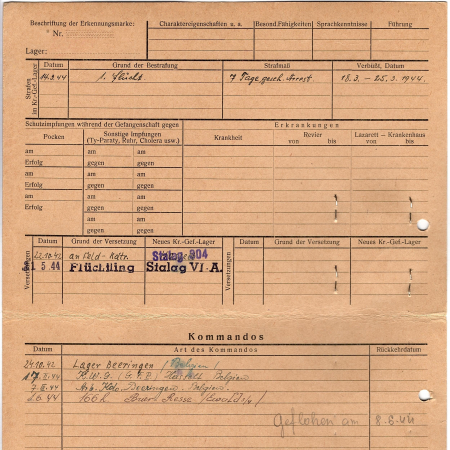 Beschriftung der Erkennungsmarke:
Nr.
Lager:
Charaktereigenschaften u. a.
Besond. Fähigkeiten
Sprachkenntnisse
Führung
Strafen im Kr.-Gef.-Lager
Datum Grund der Bestrafung Strafmaß Verbüßt, Datum
14.3.44 1. Flucht. 7 Tage gesch. Arrest 18.3. – 25.3.1944.
Schutzimpfungen während der Gefangenschaft gegen
Erkrankungen
Pocken
Sonstige Impfungen
(Ty-Paraty, Ruhr, Cholera usw.)
Krankheit
Revier
von bis
Lazarett – Krankenhaus
von bis
am am am
Erfolg gegen gegen
am am am
Erfolg gegen gegen
am am am
Erfolg gegen gegen
am am
gegen gegen
am am
gegen gegen
Versetzungen
Datum Grund der Versetzung Neues Kr.-Gef.-Lager
Versetzungen
Datum Grund der Versetzung Neues Kr.-Gef.-Lager
an Feld-Kdtr. Stalag 304
5. 44 Flüchtling Stalag VI-A.
Kommandos
Datum Art des Kommandos Rückkehrdatum
24.10.42 Lager Beeringen / Belgien /
Belgien
7. 44 Arb. Kdo. Beeringen. Belgien.
6.44
Geflohen am 8-6-44